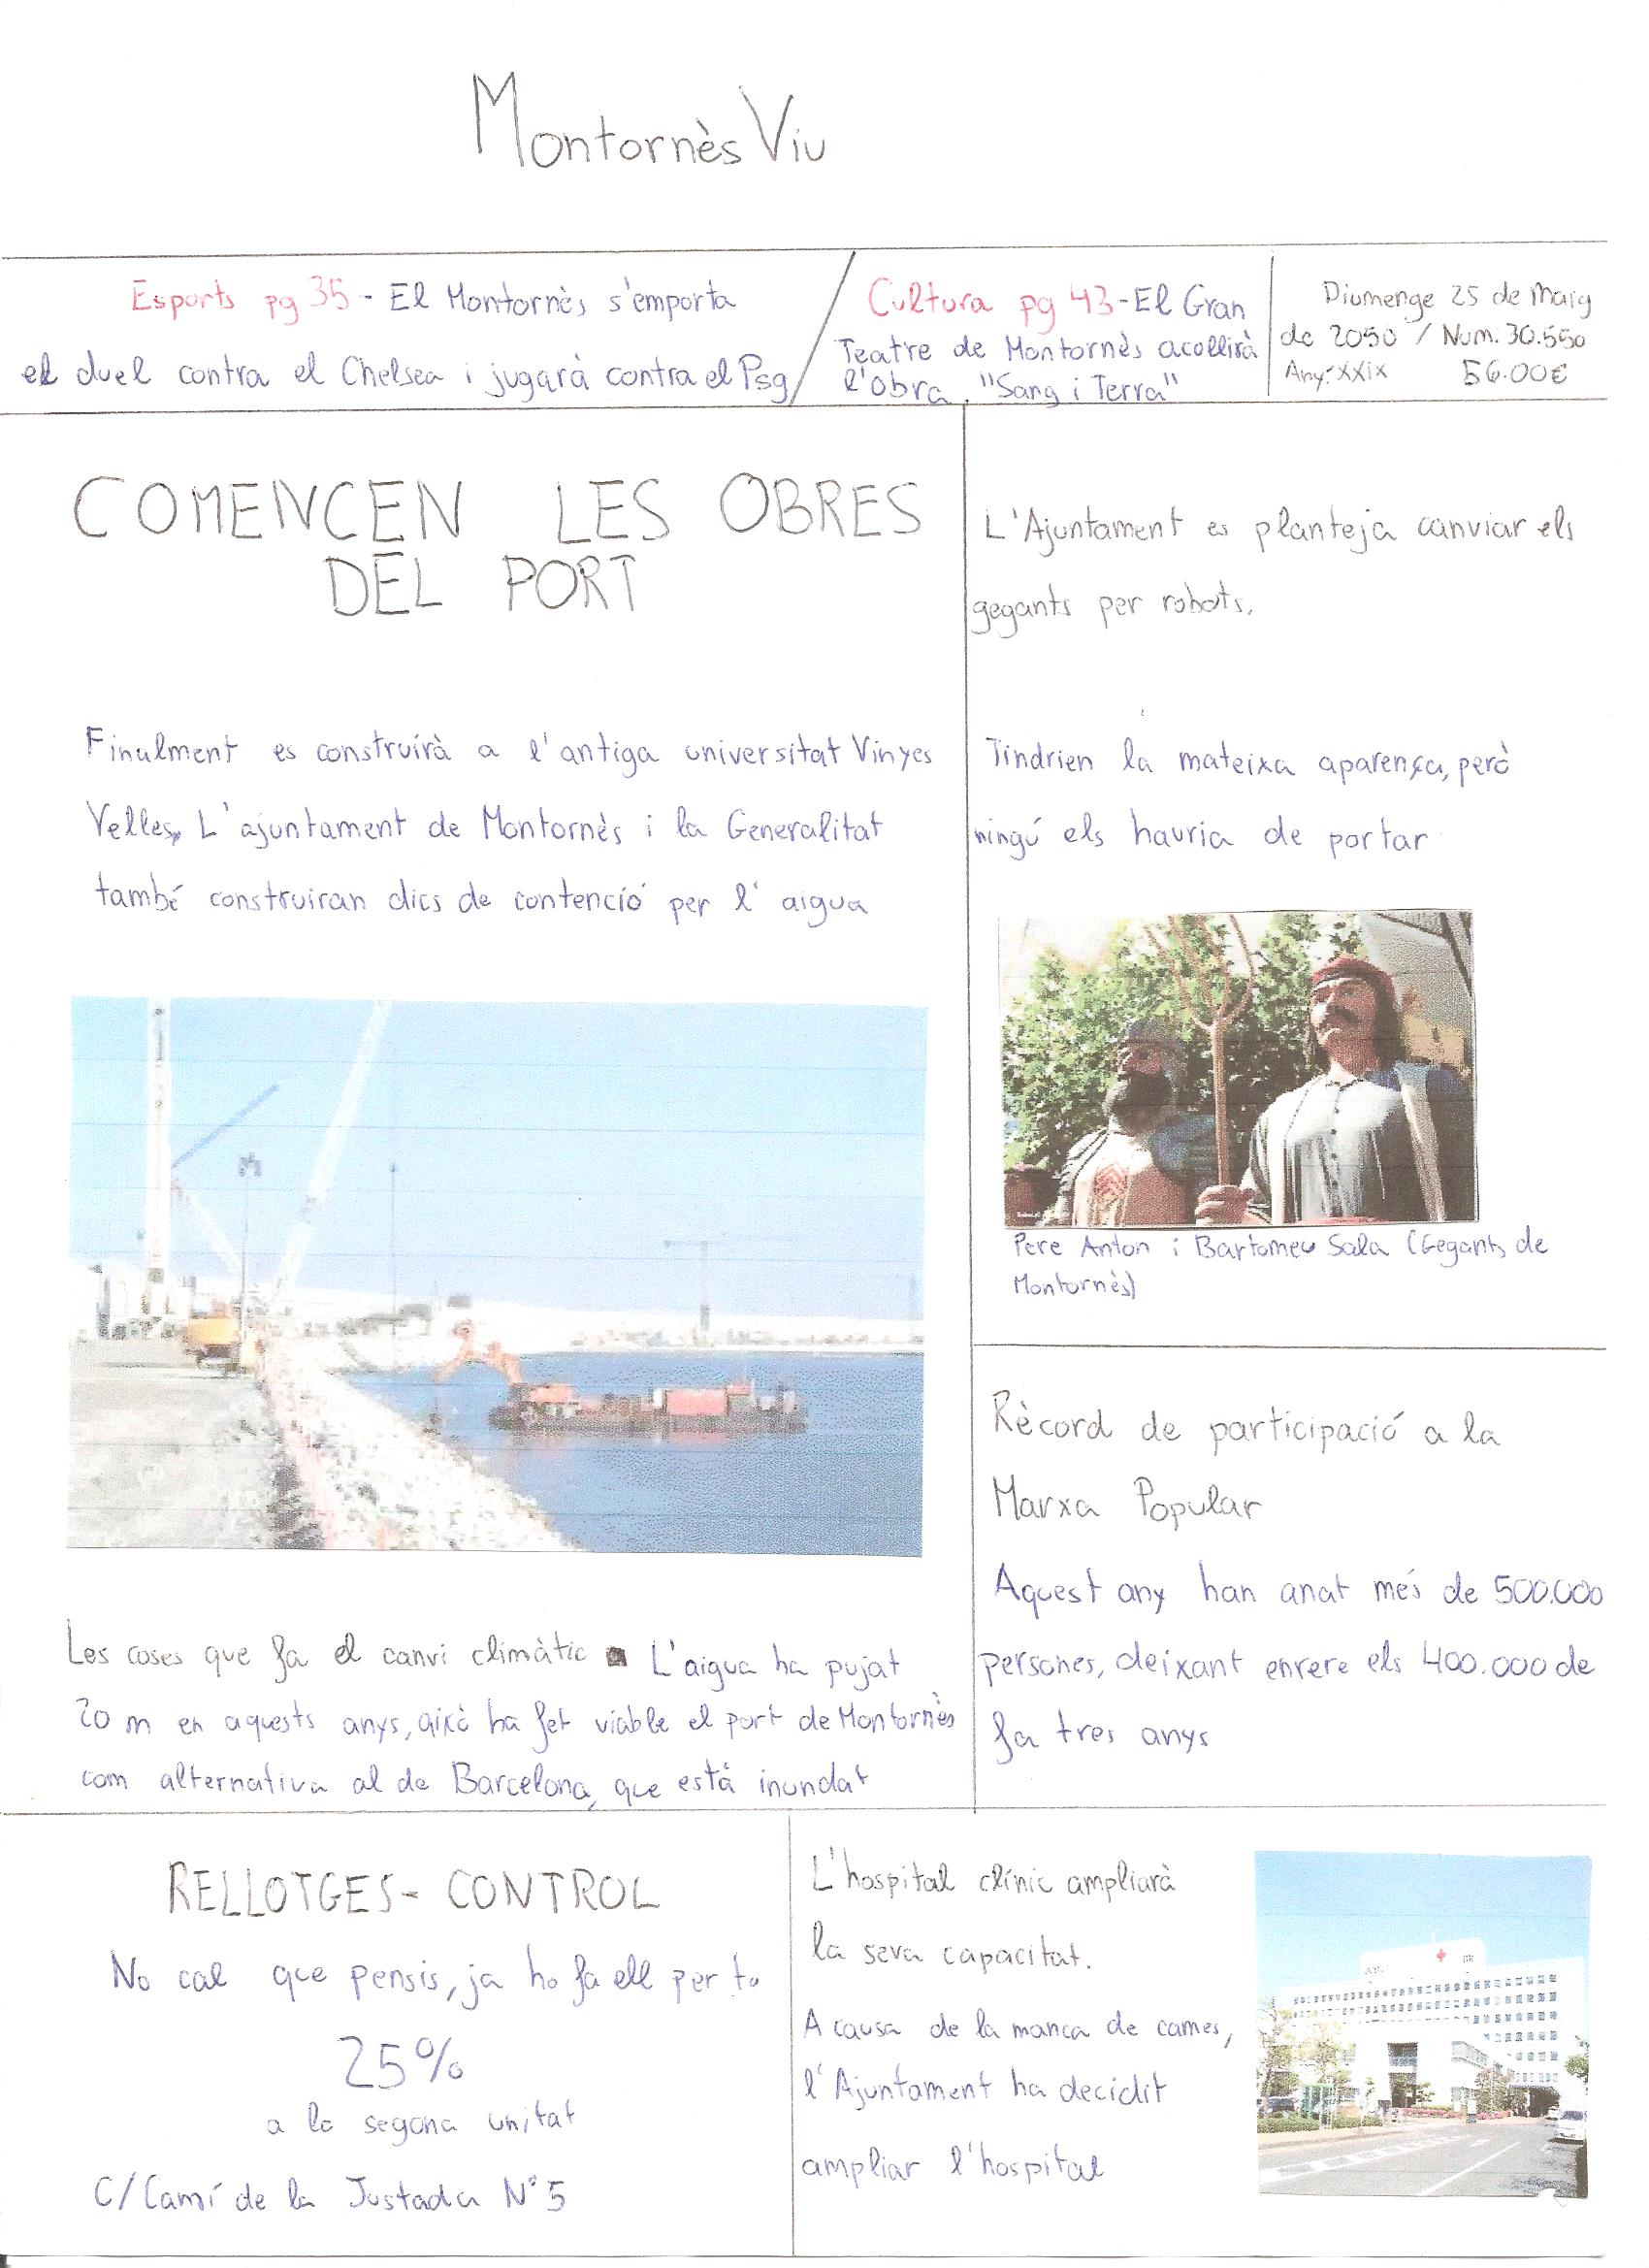 Montornès Viu
Esports pg 35 - El Montornès s'emporta
el duel contra el Chelsea i jugarà contra el Psg
Cultura pg 43 - El Gran
Teatre de Montornès acollirà
l'obra "Sang i Terra"
Diumenge 25 de Maig
de 2050 / Num. 30.550
Any: XXIX 56.00€
COMENCEN LES OBRES
DEL PORT
Finalment es construirà a l'antiga universitat Vinyes
Velles, L'ajuntament de Montornès i la Generalitat
també construiran dics de contenció per l'aigua
Les coses que fa el canvi climàtic L'aigua ha pujat
20 m en aquests anys, això ha fet viable el port de Montornès
com alternativa al de Barcelona, que està inundat
L'Ajuntament es planteja canviar els
gegants per robots.
Tindrien la mateixa aparença, però
ningú els hauria de portar
Pere Anton i Bartomeu Sala (Gegants de
Montornès)
Rècord de participació a la
Marxa Popular
Aquest any han anat més de 500.000
persones, deixant enrere els 400.000 de
fa tres anys
RELLOTGES - CONTROL
No cal que pensis, ja ho fa ell per tu
25%
a la segona unitat
C/Camí de la Justada Nº5
L'hospital clínic ampliarà
la seva capacitat.
A causa de la manca de cames,
l'Ajuntament ha decidit
ampliar l'hospital